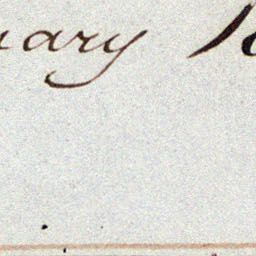 uary 18